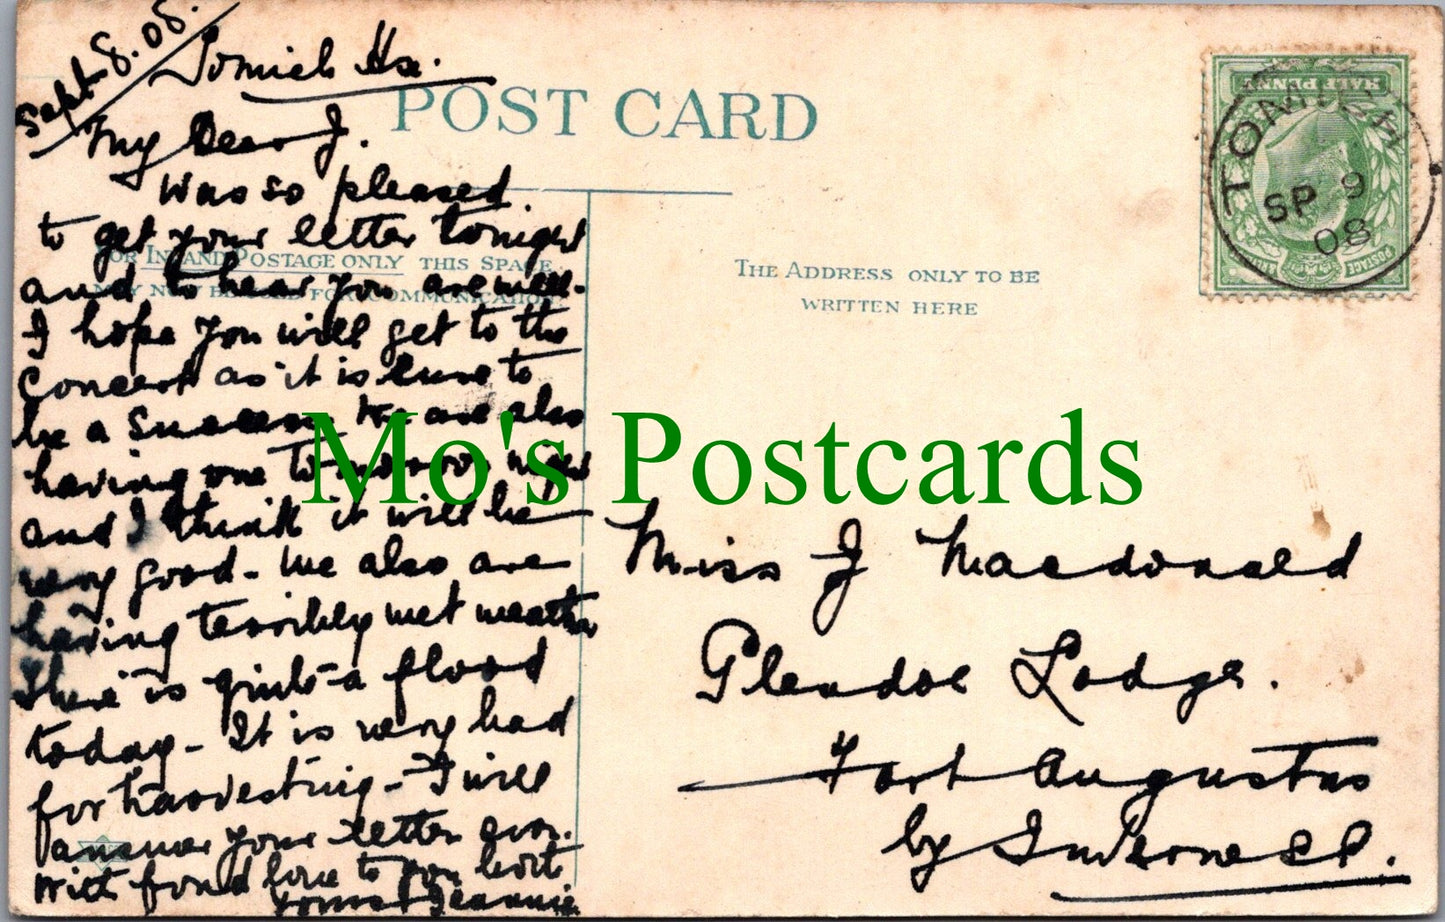 Sept 8.08.
Tomich Ho.
POST CARD
My Dear J.
Was so pleased
to get your letter tonight
and to hear you are well.
I hope you will get to the
Concert as it is sure to
be a Success. We are also
having one to-morrow night
and I think it will be
very good - We also are
having terribly wet weather
There is quite a flood
today - It is very bad
for harvesting - I will
answer your letter soon.
With fond love to you both
Yours Jeannie
FOR INLAND POSTAGE ONLY THIS SPACE
MAY NOW BE USED FOR COMMUNICATION
THE ADDRESS ONLY TO BE
WRITTEN HERE
HALF PENNY
POSTAGE
TOMICH
SP 9
08
Mo's Postcards
Miss J Macdonald
Glendoe Lodge.
Fort Augustus
by Inverness.